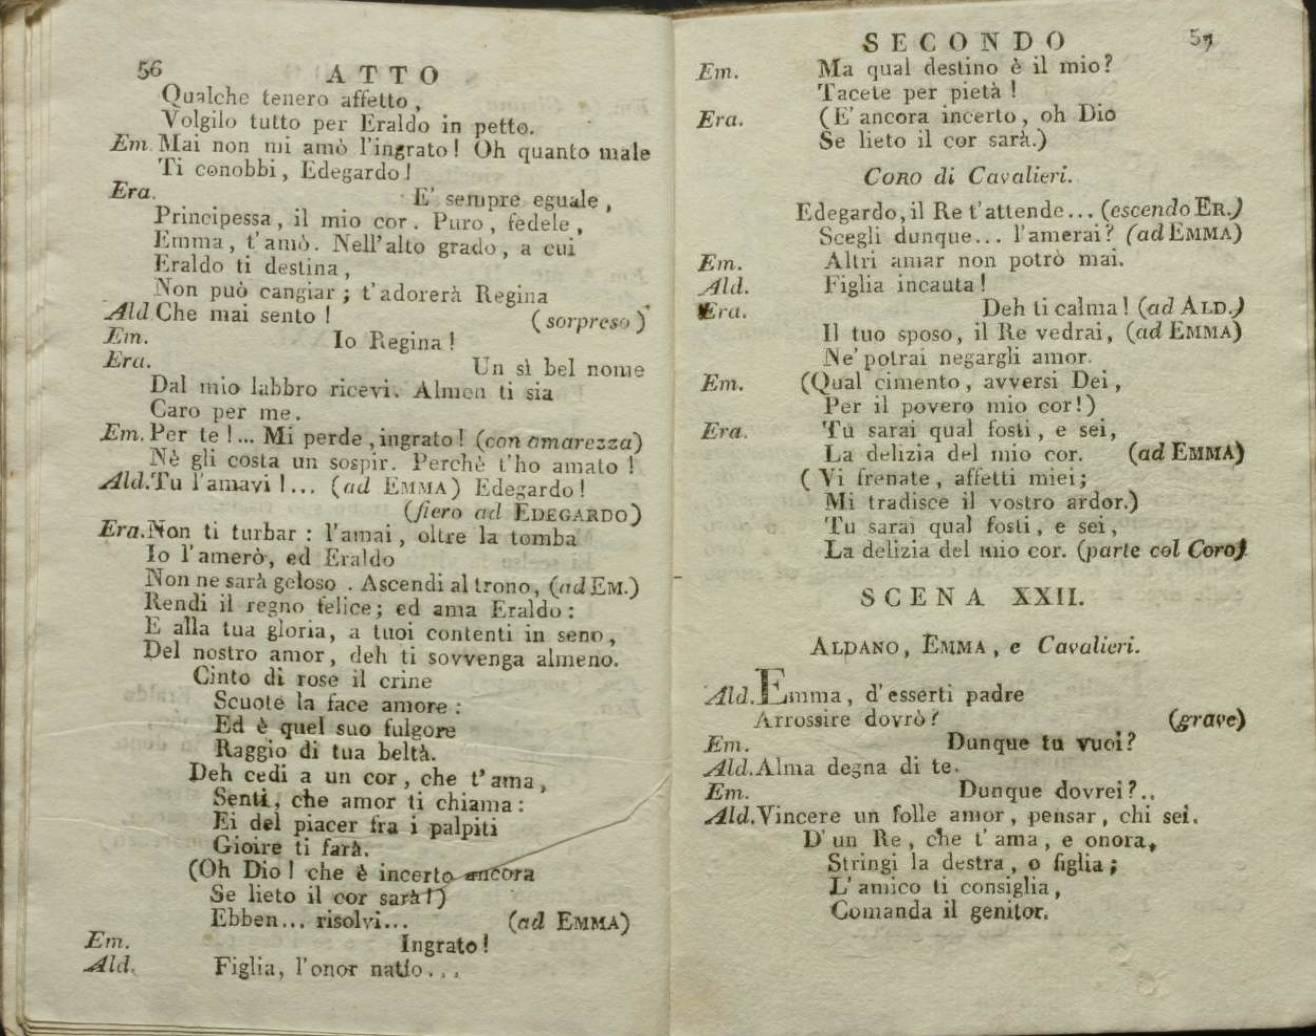 56 ATTO
Qualche tenero affetto,
Volgilo tutto per Eraldo in petto.
Em. Mai non mi amò l'ingrato! Oh quanto male
Ti conobbi, Edegardo!
Era. E' sempre eguale,
Principessa, il mio cor. Puro, fedele,
Emma, t'amò. Nell'alto grado, a cui
Eraldo ti destina,
Non può cangiar; t'adorerà Regina
Ald Che mai sento! (sorpreso)
Em. Io Regina!
Era. Un sì bel nome
Dal mio labbro ricevi. Almen ti sia
Caro per me.
Em. Per te!... Mi perde, ingrato! (con amarezza)
Nè gli costa un sospir. Perchè t'ho amato!
Ald. Tu l'amavi!... (ad EMMA) Edegardo!
(fiero ad EDEGARDO)
Era. Non ti turbar: l'amai, oltre la tomba
Io l'amerò, ed Eraldo
Non ne sarà geloso. Ascendi al trono, (ad EM.)
Rendi il regno felice; ed ama Eraldo:
E alla tua gloria, a tuoi contenti in seno,
Del nostro amor, deh ti sovvenga almeno.
Cinto di rose il crine
Scuote la face amore:
Ed è quel suo fulgore
Raggio di tua beltà.
Deh cedi a un cor, che t'ama,
Senti, che amor ti chiama:
Ei del piacer fra i palpiti
Gioire ti farà.
(Oh Dio! che è incerto ancora
Se lieto il cor sarà!)
Ebben... risolvi... (ad EMMA)
Em. Ingrato!
Ald. Figlia, l'onor natio...
SECONDO 57
Em. Ma qual destino è il mio?
Tacete per pietà!
Era. (E' ancora incerto, oh Dio
Se lieto il cor sarà.)
CORO di Cavalieri.
Edegardo, il Re t'attende... (escendo ER.)
Scegli dunque... l'amerai? (ad EMMA)
Em. Altri amar non potrò mai.
Ald. Figlia incauta!
Era. Deh ti calma! (ad ALD.)
Il tuo sposo, il Re vedrai, (ad EMMA)
Ne' potrai negargli amor.
Em. (Qual cimento, avversi Dei,
Per il povero mio cor!)
Era. Tu sarai qual fosti, e sei,
La delizia del mio cor. (ad EMMA)
(Vi frenate, affetti miei;
Mi tradisce il vostro ardor.)
Tu sarai qual fosti, e sei,
La delizia del mio cor. (parte col Coro)
SCENA XXII.
ALDANO, EMMA, e Cavalieri.
Ald. Emma, d'esserti padre
Arrossire dovrò? (grave)
Em. Dunque tu vuoi?
Ald. Alma degna di te.
Em. Dunque dovrei?..
Ald. Vincere un folle amor, pensar, chi sei.
D'un Re, che t'ama, e onora,
Stringi la destra, o figlia;
L'amico ti consiglia,
Comanda il genitor.